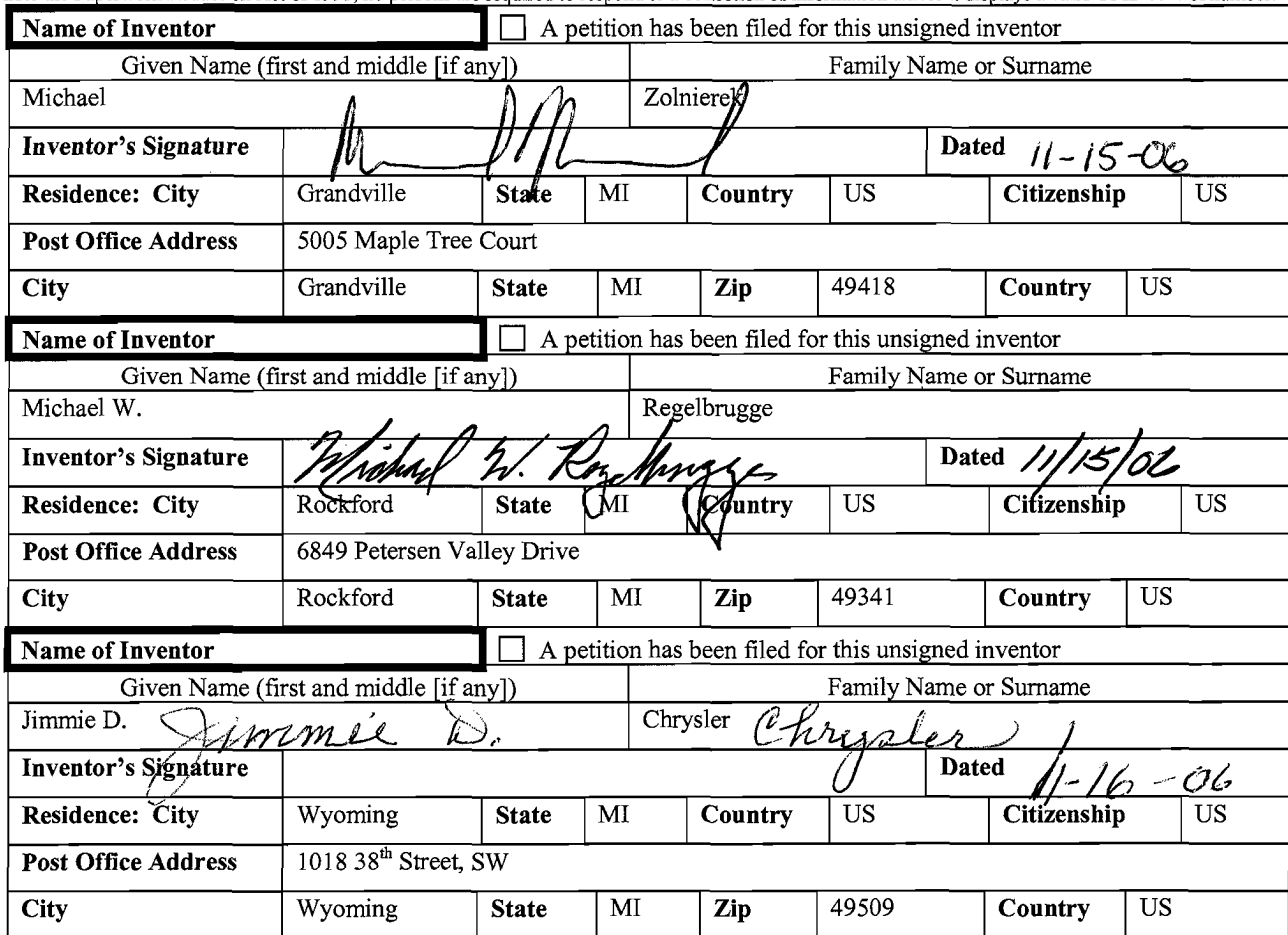 Name of Inventor ☐ A petition has been filed for this unsigned inventor
Given Name (first and middle [if any]) Family Name or Surname
Michael Zolnierek
Inventor's Signature Dated 11-15-06
Residence: City Grandville State MI Country US Citizenship US
Post Office Address 5005 Maple Tree Court
City Grandville State MI Zip 49418 Country US
Name of Inventor ☐ A petition has been filed for this unsigned inventor
Given Name (first and middle [if any]) Family Name or Surname
Michael W. Regelbrugge
Inventor's Signature Michael W. Regelbrugge Dated 11/15/06
Residence: City Rockford State MI Country US Citizenship US
Post Office Address 6849 Petersen Valley Drive
City Rockford State MI Zip 49341 Country US
Name of Inventor ☐ A petition has been filed for this unsigned inventor
Given Name (first and middle [if any]) Family Name or Surname
Jimmie D. Jimmie D. Chrysler Chrysler
Inventor's Signature Dated 11-16-06
Residence: City Wyoming State MI Country US Citizenship US
Post Office Address 1018 38th Street, SW
City Wyoming State MI Zip 49509 Country US